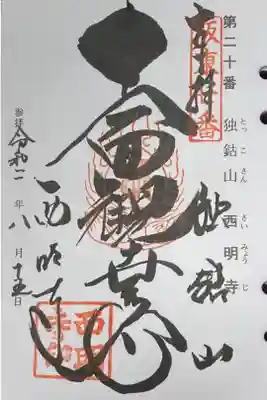 第二十番 独鈷山 西明寺
とっ こ さん さい みょう じ
奉拝
坂東
番
独鈷山
十一面観世音
西明寺
御拝 令和二年八月十五日
西明寺